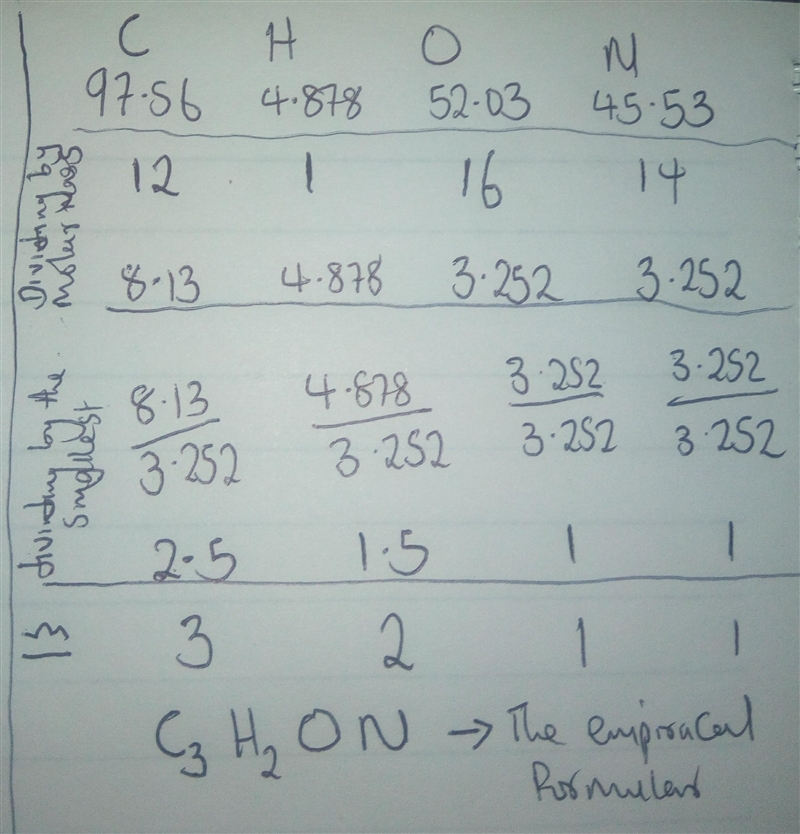 C H O N
97.56 4.878 52.03 45.53
Dividing by
molar Mass
12 1 16 14
8.13 4.878 3.252 3.252
dividing by the
smallest
8.13 4.878 3.252 3.252
3.252 3.252 3.252 3.252
2.5 1.5 1 1
3 2 1 1
C₃ H₂ O N → The empiracal
Formular